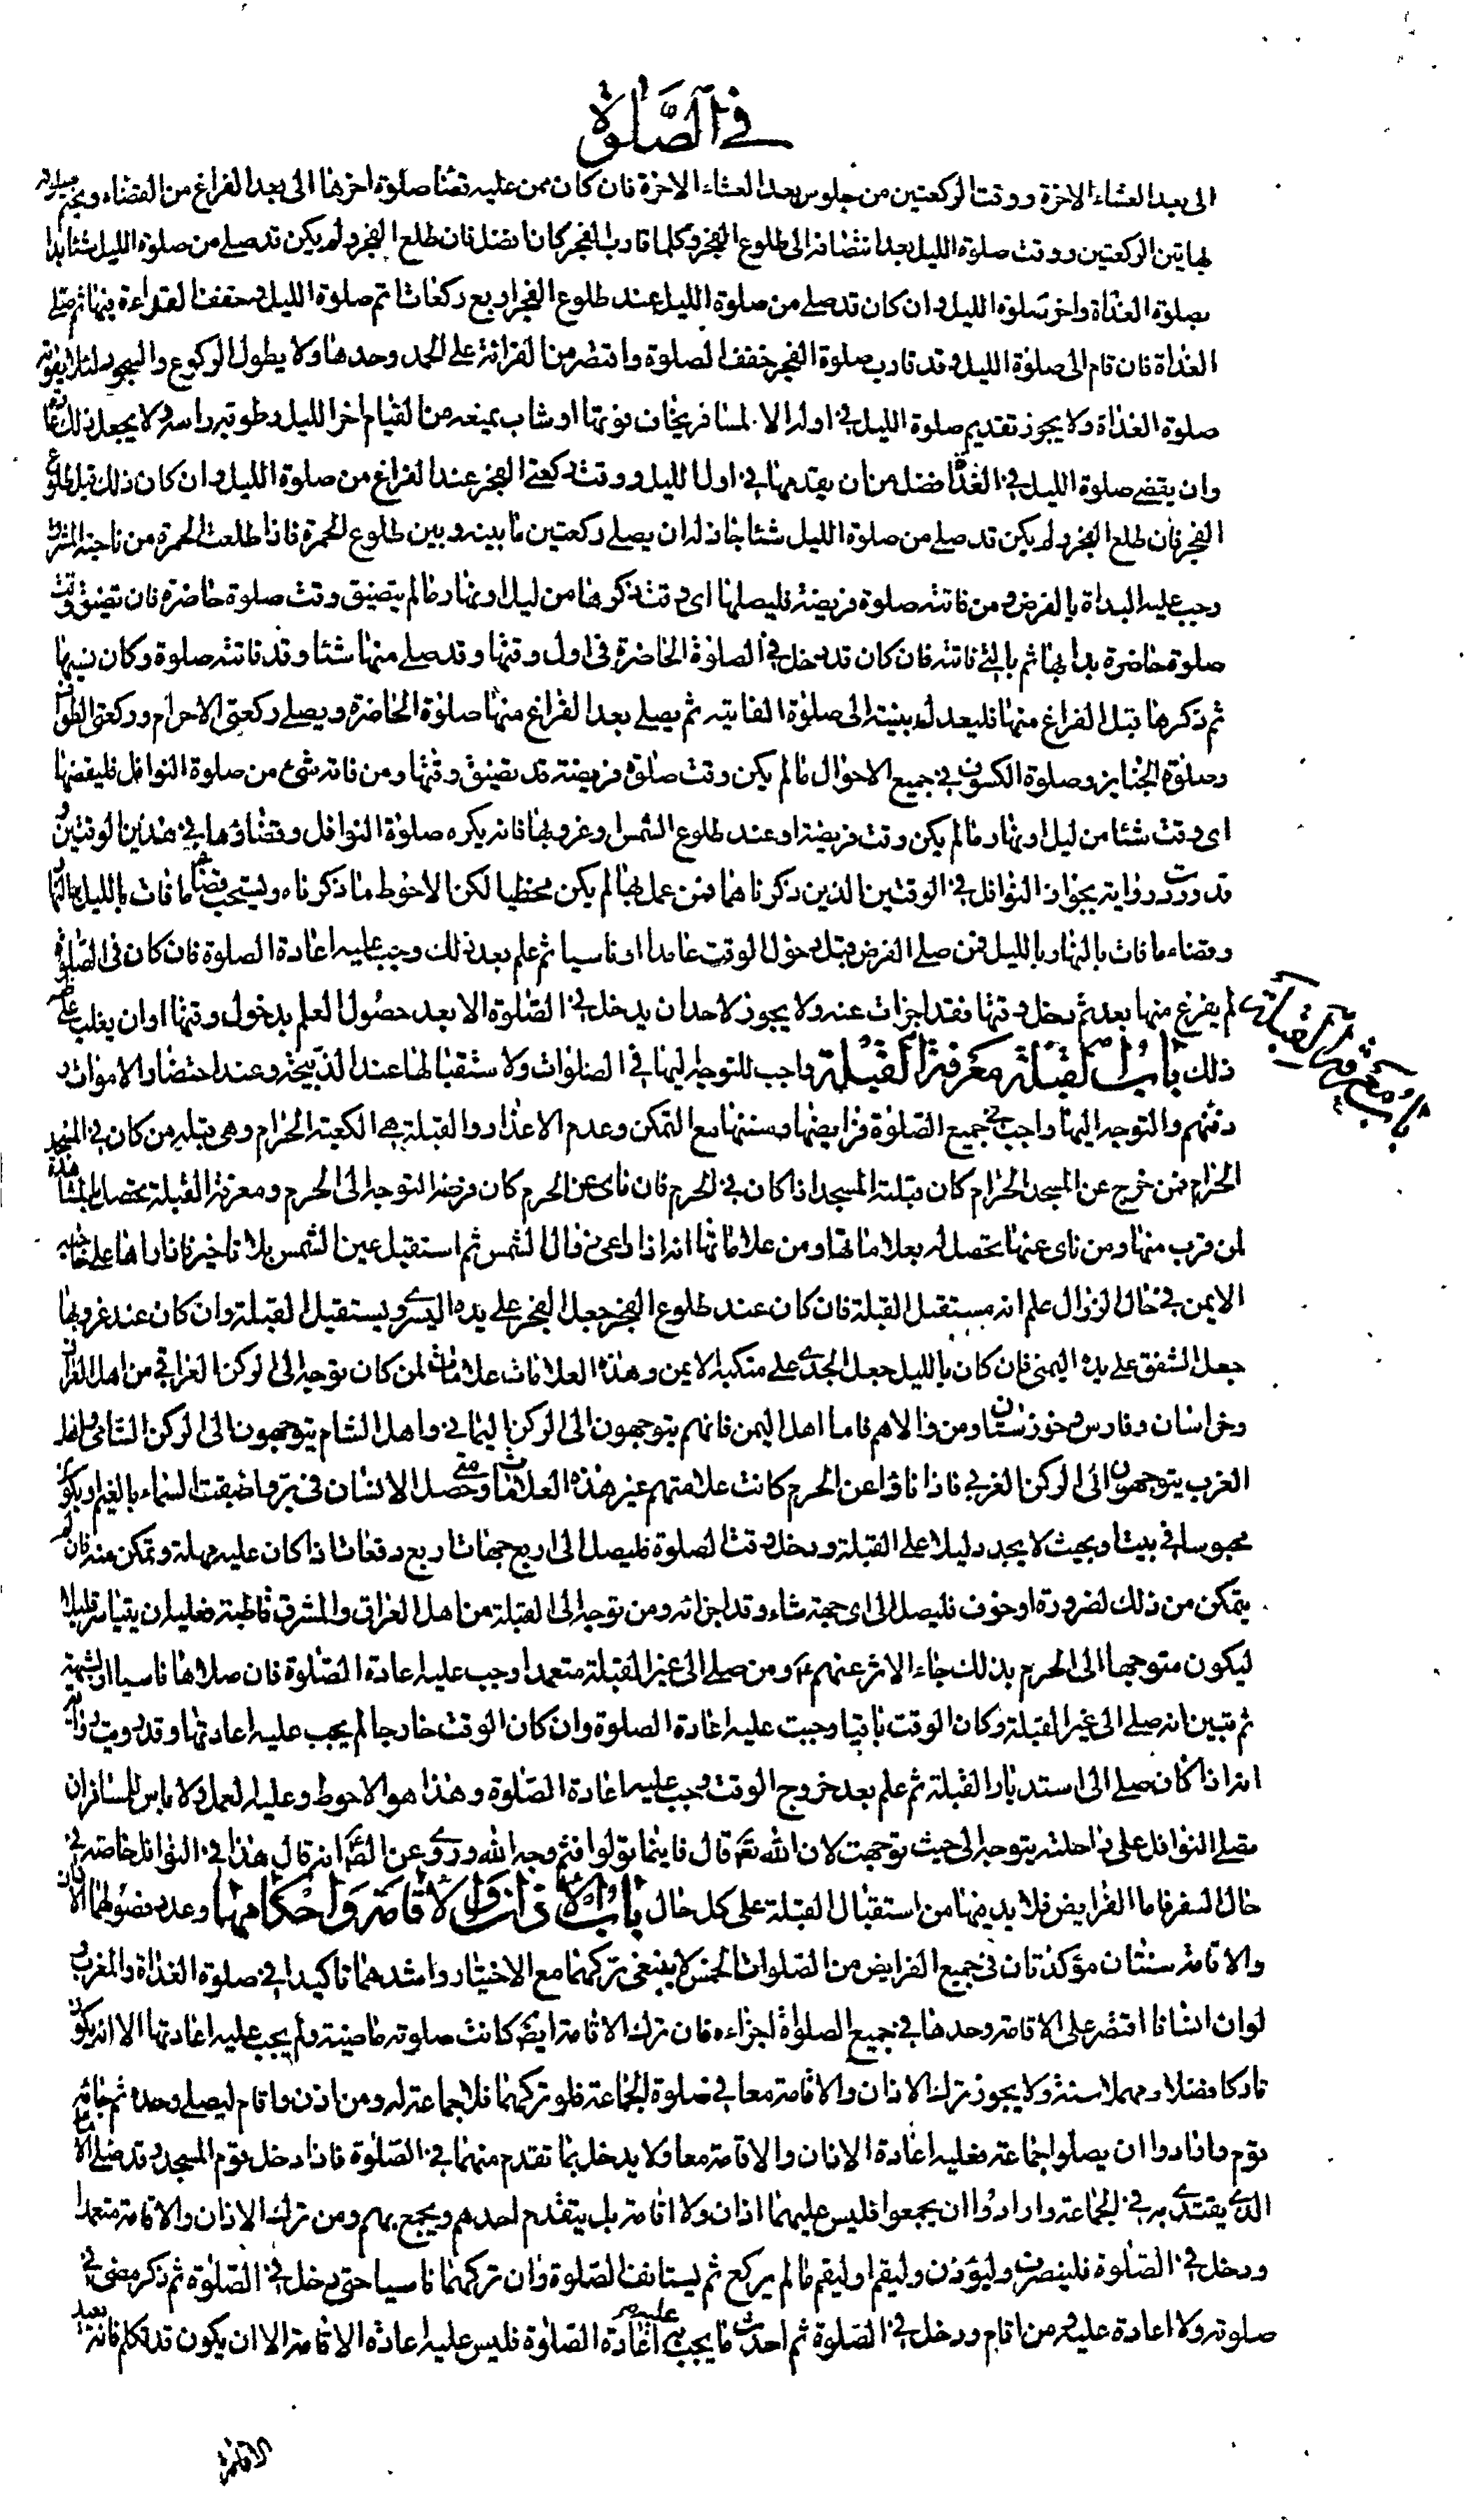 في الصَّلوة
الى بعد العشاء الاخرة ووقت الركعتين من جلوس بعد العشاء الاخرة فان كان ممن عليه قضاء صلوة اخرهما الى بعد الفراغ من القضاء ويختم صلوته
بهاتين الركعتين ووقت صلوة الليل بعد انتصافه الى طلوع الفجر وكلما قارب الفجر كان افضل فان طلع الفجر ولم يكن قد صلى من صلوة الليل شئا بدا
بصلوة الغداة واخر صلوة الليل وان كان قد صلى من صلوة الليل عند طلوع الفجر اربع ركعات اتم صلوة الليل وخفف القراءة فيها ثم صلى
الغداة فان قام الى صلوة الليل وقد قارب صلوة الفجر خفف الصلوة واقتصر من القرائة على الحمد وحدها ولا يطول الركوع والسجود لئلا يفوته
صلوة الغداة ولا يجوز تقديم صلوة الليل في اوله الا لمسافر يخاف فوتها او شاب يمنعه من القيام اخر الليل رطوبة راسه ولا يجعل ذلك عادة
وان يقضى صلوة الليل في الغد افضل من ان يقدمها في اول الليل ووقت ركعتى الفجر عند الفراغ من صلوة الليل وان كان ذلك قبل طلوع
الفجر فان طلع الفجر ولم يكن قد صلى من صلوة الليل شئا جاز له ان يصلى ركعتين ما بينه وبين طلوع الحمرة فاذا طلعت الحمرة من ناحية المشرق
وجب عليه البداة بالفرض ومن فاتته صلوة فريضة فليصلها اى وقت ذكرها من ليل او نهار ما لم يتضيق وقت صلوة حاضرة فان تضيق وقت
صلوة حاضرة بدا بها ثم بالتى فاتته فان كان قد دخل في الصلوة الحاضرة في اول وقتها وقد صلى منها شئا وقد فاتته صلوة وكان نسيها
ثم ذكرها قبل الفراغ منها فليعدل بنيته الى صلوة الفايتة ثم يصلى بعد الفراغ منها صلوة الحاضرة ويصلى ركعتى الاحرام وركعتى الطواف
وصلوة الجنايز وصلوة الكسوف في جميع الاحوال ما لم يكن وقت صلوة فريضة قد تضيق وقتها ومن فاته شئ من صلوة النوافل فليقضها
اى وقت شئا من ليل او نهار ما لم يكن وقت فريضة او عند طلوع الشمس او غروبها فانه يكره صلوة النوافل وقضاؤها في هذين الوقتين و
قد وردت رواية بجواز النوافل في الوقتين الذين ذكرناهما فمن عمل بها لم يكن مخطيا لكن الاحوط ما ذكرناه ويستحب قضاء ما فات بالليل بالنهار
وقضاء ما فات بالنهار بالليل فمن صلى الفرض قبل دخول الوقت عامدا او ناسيا ثم علم بعد ذلك وجب عليه اعادة الصلوة فان كان في الصلوة
لم يفرغ منها بعد ثم دخل وقتها فقد اجزات عنه ولا يجوز لاحد ان يدخل في الصلوة الا بعد حصول العلم بدخول وقتها او ان يغلب على ظنه
ذلك باب القبلة معرفة القبلة واجب للتوجه اليها في الصلوات ولاستقبالها عند الذبيحة وعند احتضار الاموات و
دفنهم والتوجه اليها واجب في جميع الصلوة فرايضها وسننها مع التمكن وعدم الاعذار والقبلة هى الكعبة الحرام وهى قبلة من كان في المسجد
الحرام فمن خرج عن المسجد الحرام كان قبلته المسجد اذا كان في الحرم فان ناى عن الحرم كان فرضه التوجه الى الحرم ومعرفة القبلة تحصل بالمشاهدة
لمن قرب منها ومن ناى عنها تحصل له بعلاماتها ومن علاماتها انه اذا راعى زوال الشمس ثم استقبل عين الشمس بلا تاخير فاذا راها على حاجبه
الايمن في حال الزوال علم انه مستقبل القبلة فان كان عند طلوع الفجر جعل الفجر على يده اليسرى ويستقبل القبلة وان كان عند غروبها
جعل الشفق على يده اليمنى فان كان بالليل جعل الجدى على منكبه الايمن وهذه العلامات علامات لمن كان توجه الى الركن العراقى من اهل العراق
وخراسان وفارس وخوزستان ومن والاهم فاما اهل اليمن فانهم يتوجهون الى الركن اليمانى واهل الشام يتوجهون الى الركن الشامى واهل
الغرب يتوجهون الى الركن الغربى فاذا ناؤا عن الحرم كانت علامتهم غير هذه العلامات ومتى حصل الانسان في بر واطبقت السماء بالغيم او يكون
محبوسا في بيت او بحيث لا يجد دليلا على القبلة ودخل وقت الصلوة فليصل الى اربع جهات اربع دفعات اذا كان عليه مهلة وتمكن منه فان لم
يتمكن من ذلك لضرورة او خوف فليصل الى اى جهة شاء وقد اجزائه ومن توجه الى القبلة من اهل العراق والمشرق قاطبة فعليه ان يتياسر قليلا
ليكون متوجها الى الحرم بذلك جاء الاثر عنهم ع ومن صلى الى غير القبلة متعمدا وجب عليه اعادة الصلوة فان صلاها ناسيا او لشبهة
ثم تبين انه صلى الى غير القبلة وكان الوقت باقيا وجبت عليه اعادة الصلوة وان كان الوقت خارجا لم يجب عليه اعادتها وقد رويت رواية
انه اذا كان صلى الى استدبار القبلة ثم علم بعد خروج الوقت وجب عليه اعادة الصلوة وهذا هو الاحوط وعليه العمل ولا باس للمسافر ان
يصلى النوافل على راحلته يتوجه الى حيث توجهت لان الله تع قال فاينما تولوا فثم وجه الله وروى عن الصم انه قال هذا في النوافل خاصة في
حال السفر فاما الفرايض فلا بد فيها من استقبال القبلة على كل حال باب الاذان والاقامة واحكامهما وعدد فصولهما الاذان
والاقامة سنتان مؤكدتان في جميع الفرايض من الصلوات الخمس لا ينبغى تركهما مع الاختيار واشدهما تاكيدا في صلوة الغداة والمغرب
لو ان انسانا اقتصر على الاقامة وحدها في جميع الصلوة اجزاءه فان ترك الاقامة ايضا كانت صلوته ماضية ولم يجب عليه اعادتها الا انه يكون
تاركا فضلا ومهملا سنة ولا يجوز ترك الاذان والاقامة معا في صلوة الجماعة فلو تركهما فلا جماعة له ومن اذن واقام ليصلى وحده ثم جائه
قوم وارادوا ان يصلوا جماعة فعليه اعادة الاذان والاقامة معا ولا يدخل بما تقدم منهما في الصلوة فاذا دخل قوم المسجد وقد صلى الامام
الذى يقتدى به في الجماعة وارادوا ان يجمعوا فليس عليهما اذان ولا اقامة بل يتقدم احدهم ويجمع بهم ومن ترك الاذان والاقامة متعمدا
ودخل في الصلوة فلينصرف وليؤذن وليقم او ليقم ما لم يركع ثم يستانف الصلوة وان تركهما ناسيا حتى دخل في الصلوة ثم ذكر مضى في
صلوته ولا اعادة عليه ومن اقام ودخل في الصلوة ثم احدث ما يجب به عليه اعادة الصلوة فليس عليه اعادة الاقامة الا ان يكون قد تكلم فانه يعيد
الاقامة
باب معرفة القبلة